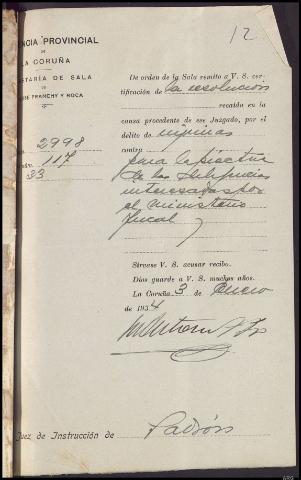 12
NCIA PROVINCIAL
DE
LA CORUÑA
ETARÍA DE SALA
DE
SE FRANCHY Y ROCA
De orden de la Sala remito a V. S. cer-
tificación de la resolución
recaida en la
causa precedente de ese Juzgado, por el
delito de injurias
2998
117
33
contra
para la práctica
de las diligencias
interesadas por
el Ministerio
Fiscal
Sírvase V. S. acusar recibo.
Dios guarde a V. S. muchos años.
La Coruña 3 de Enero
de 1934
Juez de Instrucción de Padrón